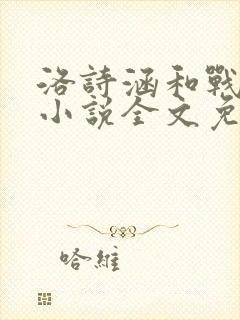 洛詩涵和戰
小說全文免
哈維